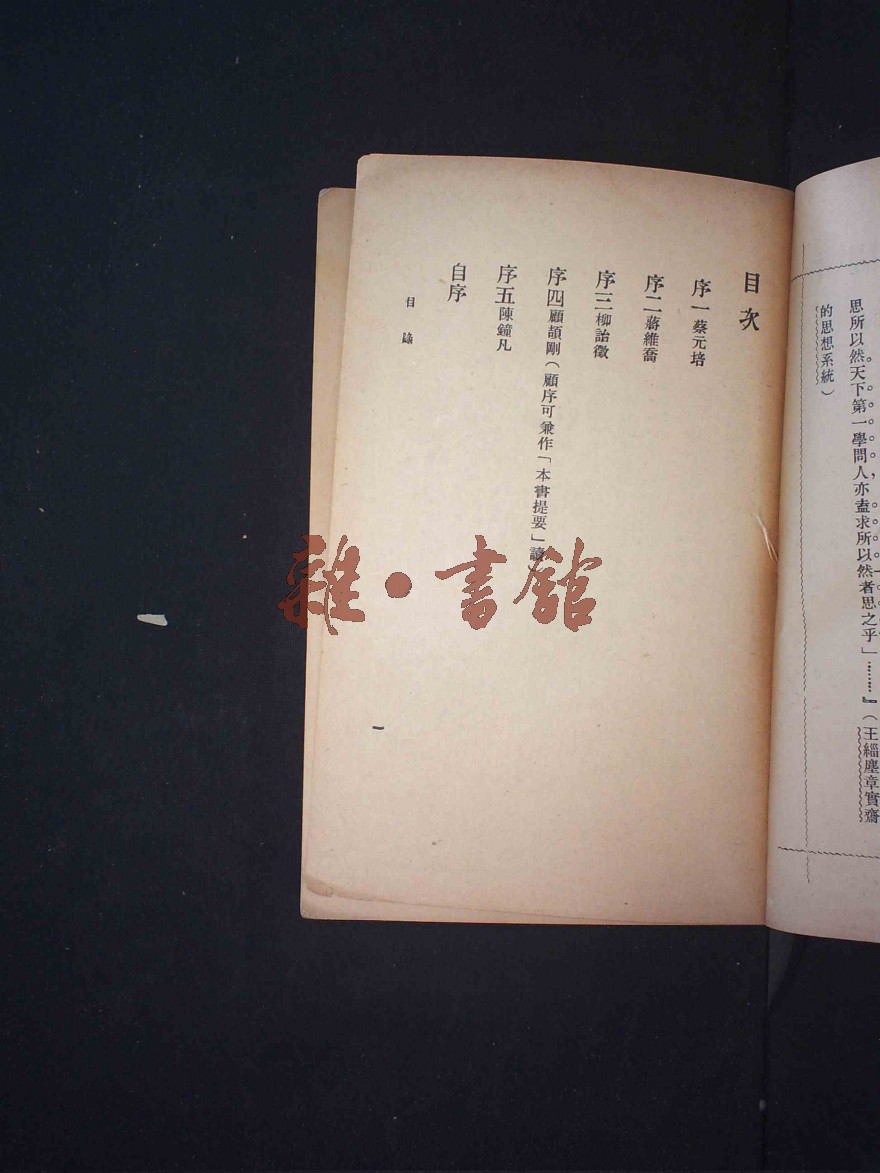 思所以然天下第一學問人亦盍求所以然者思之乎」………』(王緇塵章實齋
的思想系統)
目次
序一蔡元培
序二蔣維喬
序三柳詒徵
序四顧頡剛(顧序可兼作「本書提要」讀)
序五陳鐘凡
自序
目錄
一
雜·書館